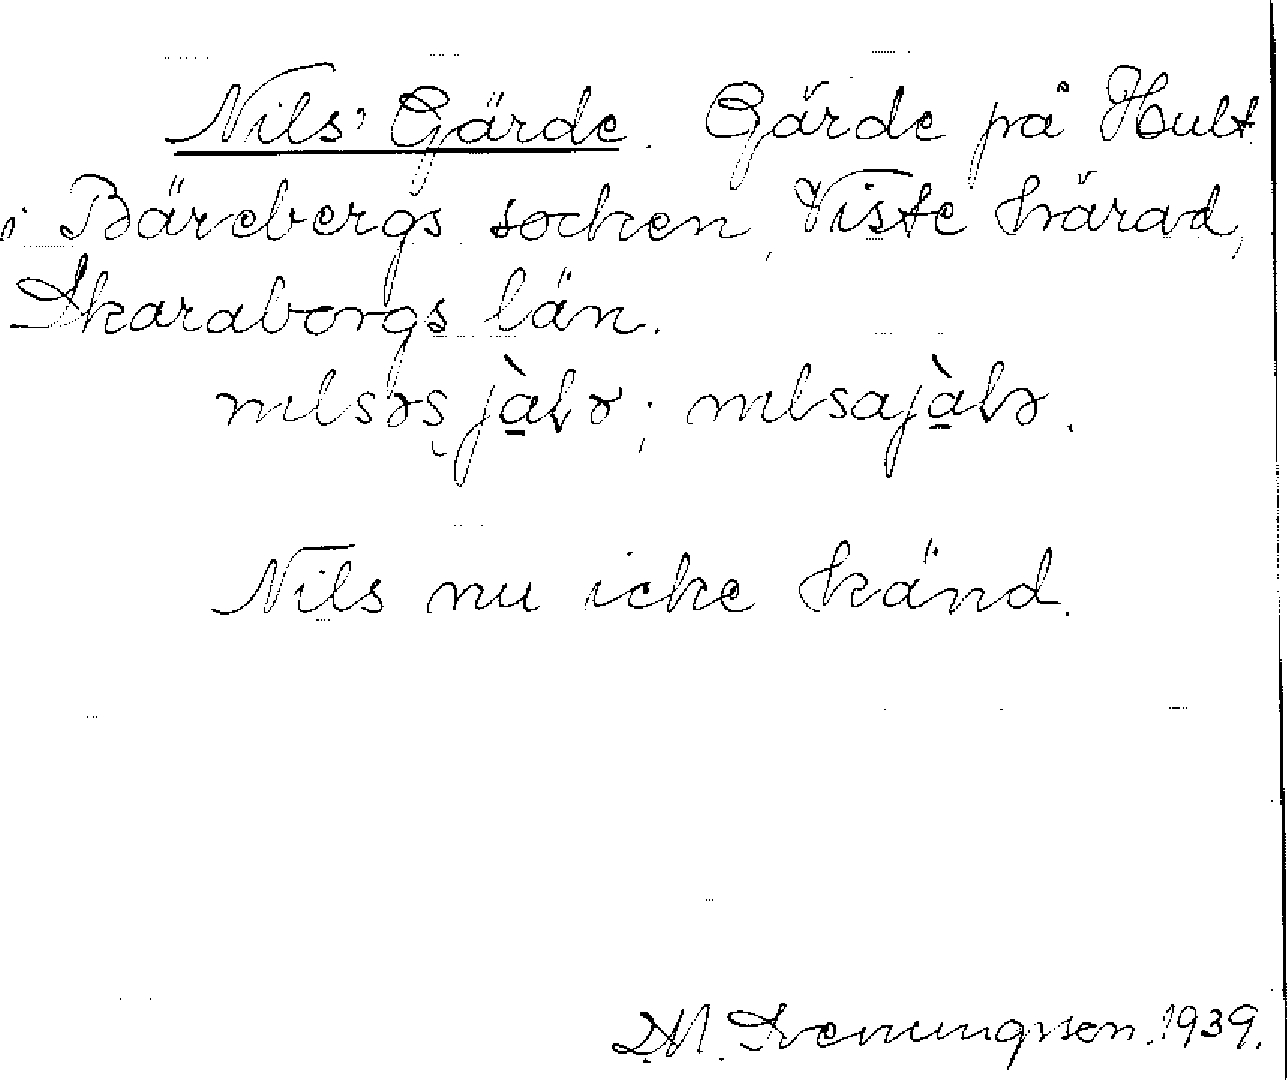 Nils' Gärde. Gärde på Hult
i Bärebergs socken, Viste härad,
Skaraborgs län.
nɩlsəs jàlə; nɩlsajàlə.
Nils nu icke känd.
1939.